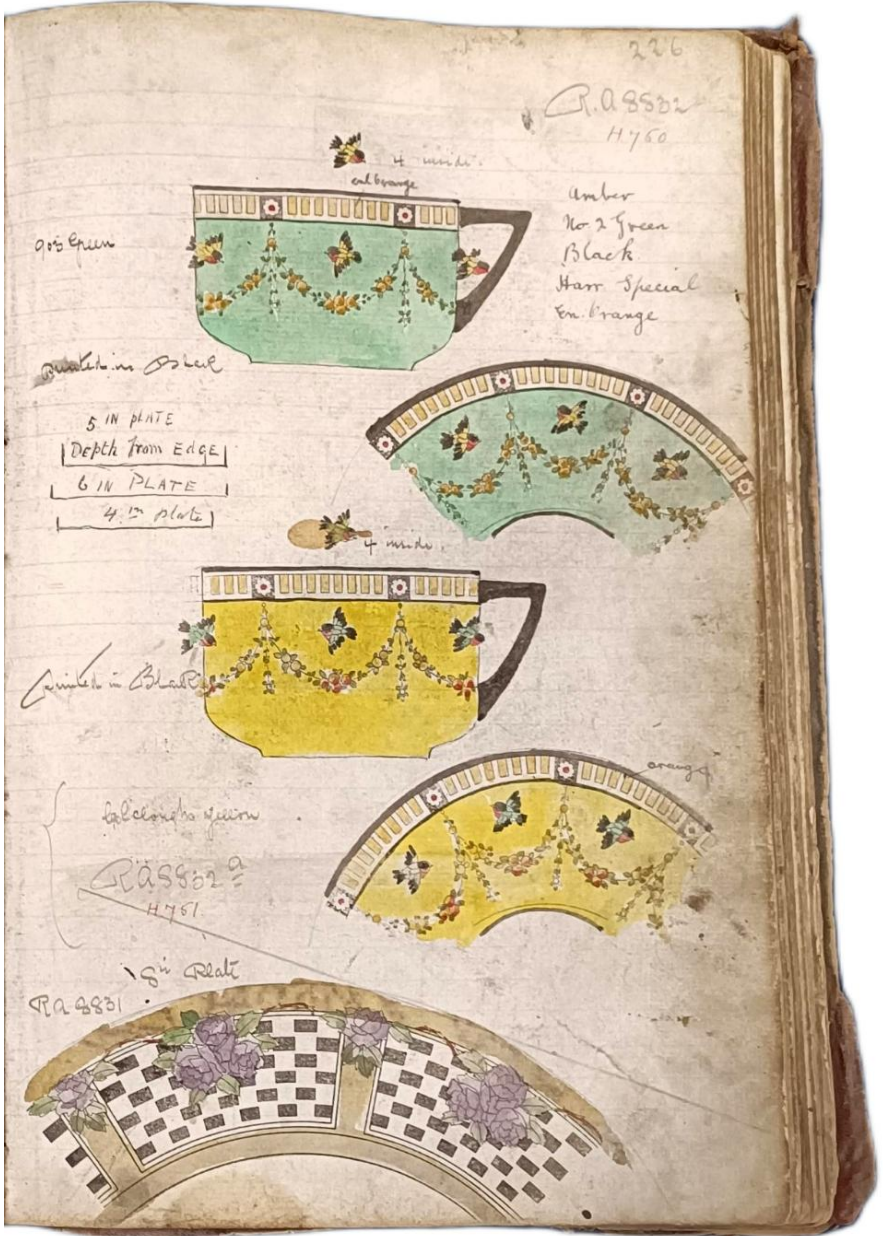 226
R.A 8832
H760
4 inside.
enl Orange
Amber
No. 2 Green
Black
Harr Special
En. Orange
Green
Printed in Black
5 IN PLATE
Depth from Edge
6 IN PLATE
4 in plate
4 inside.
Printed in Black
orange
RA8832 a
H761
8in Plate
RA 8831